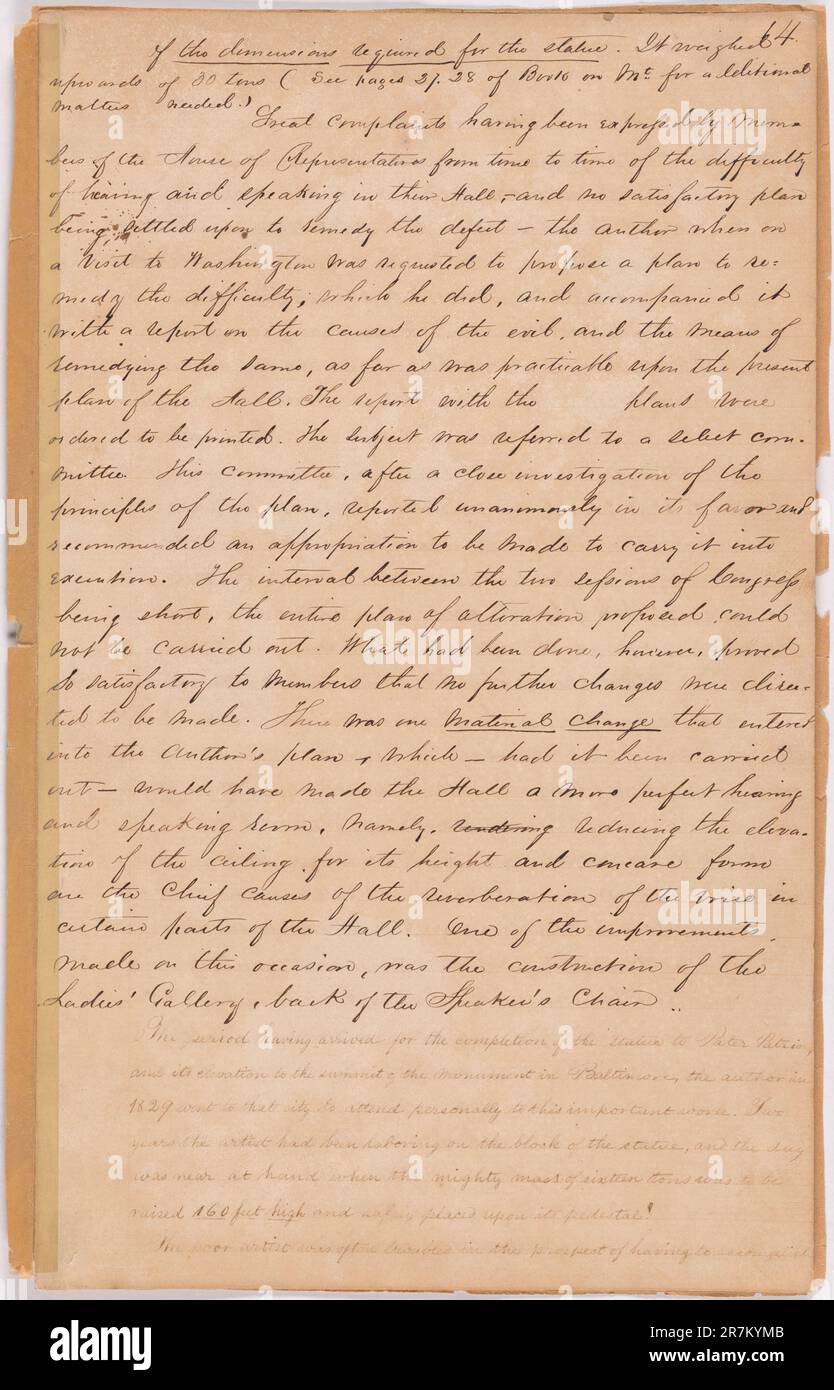 64.
of the dimensions required for the statue. It weighed
upwards of 30 tons (See pages 27. 28 of Book on Mt. for additional
matter needed.)
Great complaints having been expressed by mem=
bers of the House of Representatives from time to time of the difficulty
of hearing and speaking in their Hall, and no satisfactory plan
being settled upon to remedy the defect – the author when on
a visit to Washington was requested to propose a plan to re=
medy the difficulty; which he did, and accompanied it
with a report on the causes of the evil, and the means of
remedying the same, as far as was practicable upon the present
plan of the Hall. The report with the plans were
ordered to be printed. The subject was referred to a select com-
mittee. This committee, after a close investigation of the
principles of the plan, reported unanimously in its favor and
recommended an appropriation to be made to carry it into
execution. The interval between the two sessions of Congress
being short, the entire plan of alteration proposed could
not be carried out. What had been done, however, proved
so satisfactory to members that no further changes were direc-
ted to be made. There was one material change that entered
into the author's plan, which – had it been carried
out – would have made the Hall a more perfect hearing
and speaking room, namely, rendering reducing the eleva-
tion of the ceiling, for its height and concave form
are the chief causes of the reverberation of the voice in
certain parts of the Hall. One of the improvements,
made on this occasion, was the construction of the
Ladies' Gallery, back of the Speaker's Chair..
The period having arrived for the completion of the statue to Pater Patria,
and its elevation to the summit of the monument in Baltimore, the author in
1829 went to that city to attend personally to this important work. Two
years the artist had been laboring on the block of the statue, and the day
was near at hand when the mighty mass of sixteen tons was to be
raised 160 feet high and safely placed upon its pedestal!
The poor artist was often troubled in the prospect of having to accomplish
alamy
alamy
alamy
alamy
alamy
Image ID: 2R7KYMB
www.alamy.com